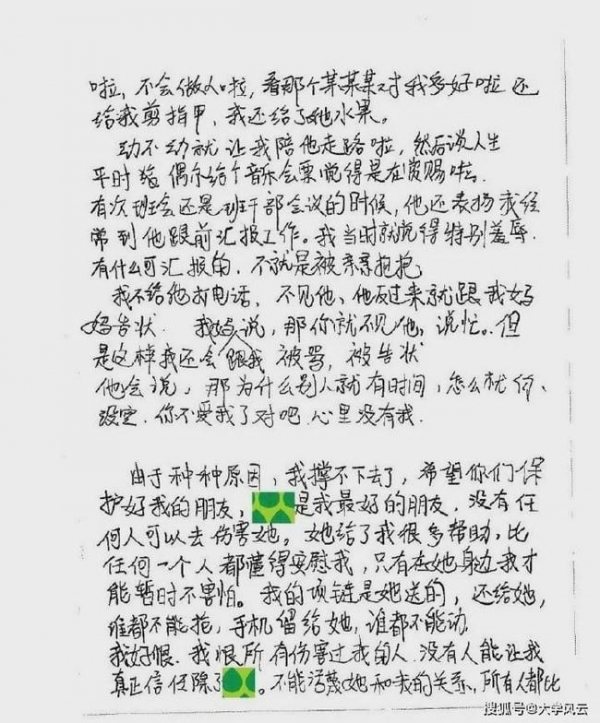 啦，不会做人啦，看那个某某某对我多好啦 还
给我剪指甲，我还给了她水果。
动不动就让我陪他走路啦，然后谈人生
平时给 偶尔给个音乐会票觉得是在赏赐啦.
有次班会还是班干部会议的时候，他还表扬我经
常到他跟前汇报工作。我当时就觉得特别羞辱.
有什么可汇报的，不就是被亲亲抱抱
我不给他打电话，不见他，他反过来就跟我妈
妈告状. 我妈说，那你就不见他，说忙。但
是这样我还会跟我 被骂，被告状
他会说，那为什么别人就有时间，怎么就你、
没空. 你不爱我了对吧 心里没有我.
由于种种原因，我撑不下去了，希望你们保
护好我的朋友，是我最好的朋友，没有任
何人可以去伤害她。她给了我很多帮助，比
任何一个人都懂得安慰我，只有在她身边我才
能暂时不害怕。我的项链是她送的，还给她，
谁都不能抢，手机留给她，谁都不能动
我好恨. 我恨所有伤害过我的人. 没有人能让我
真正信任除了。不能污蔑她和我的关系，所有人都比
搜狐号@大学风云